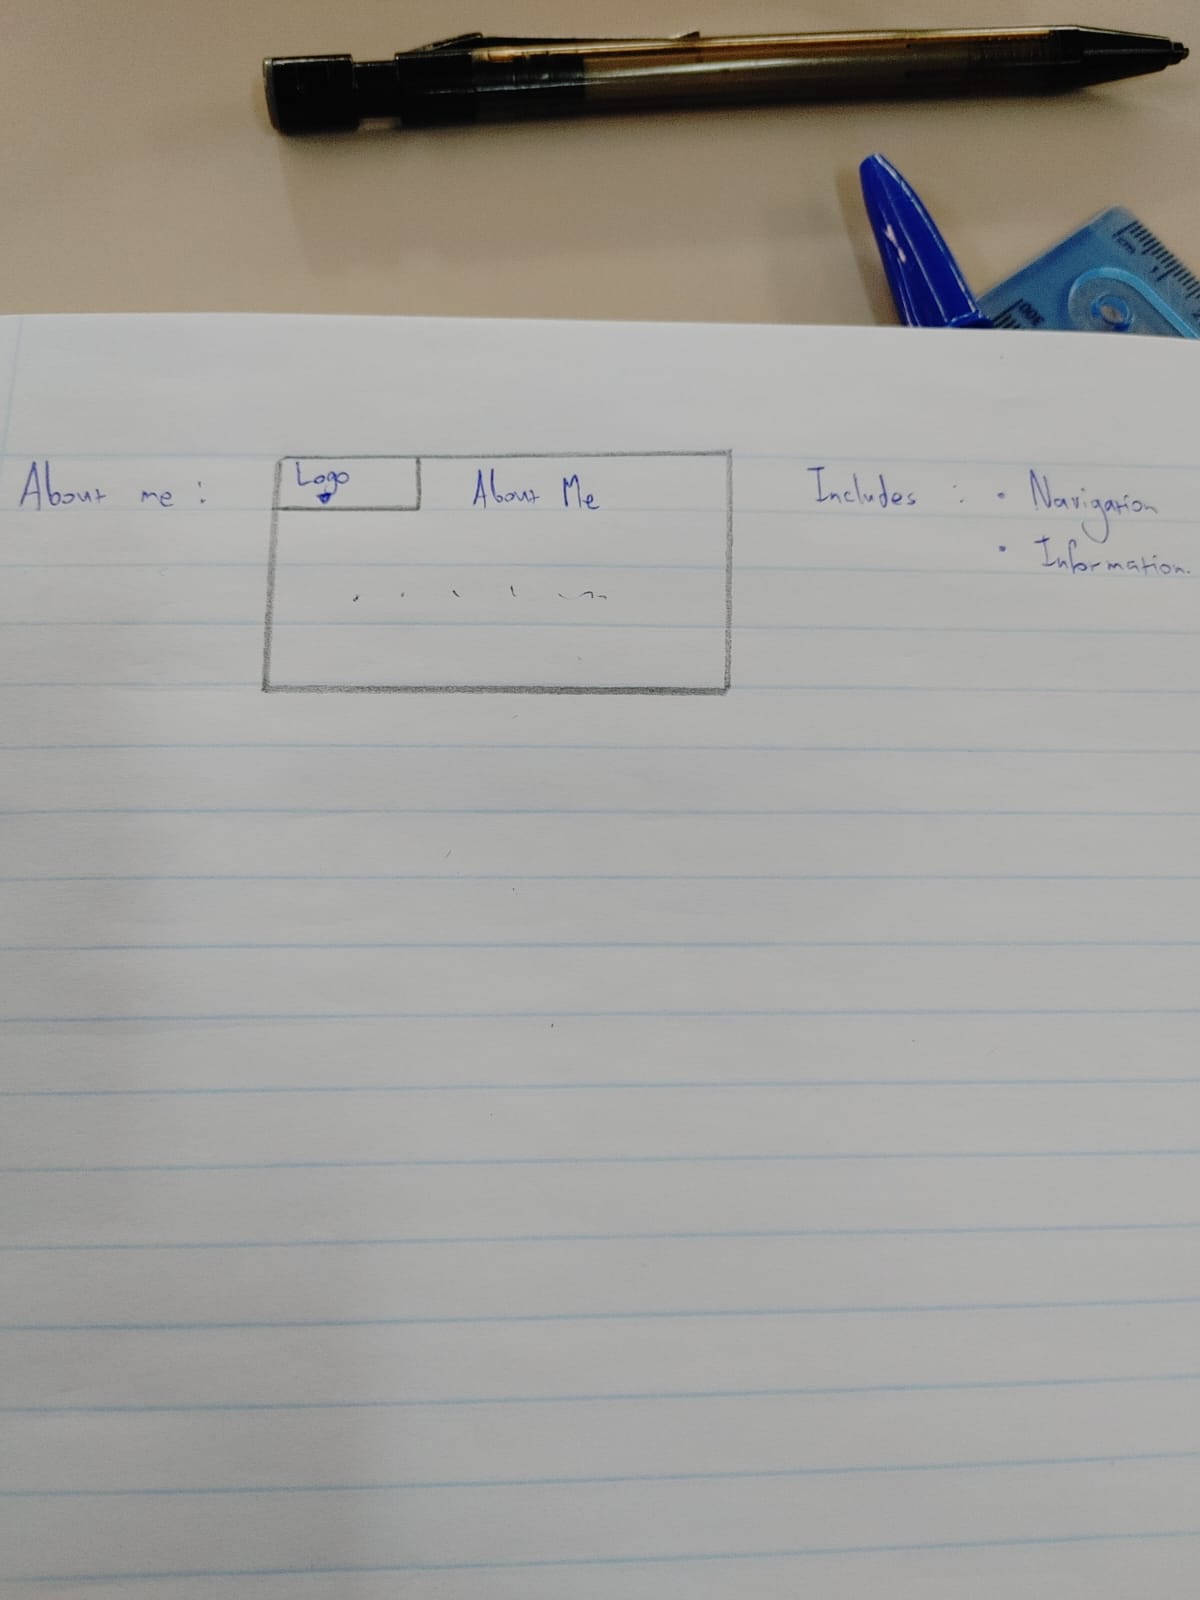 About me :
Logo
About Me
Includes : • Navigation
• Information.
cm